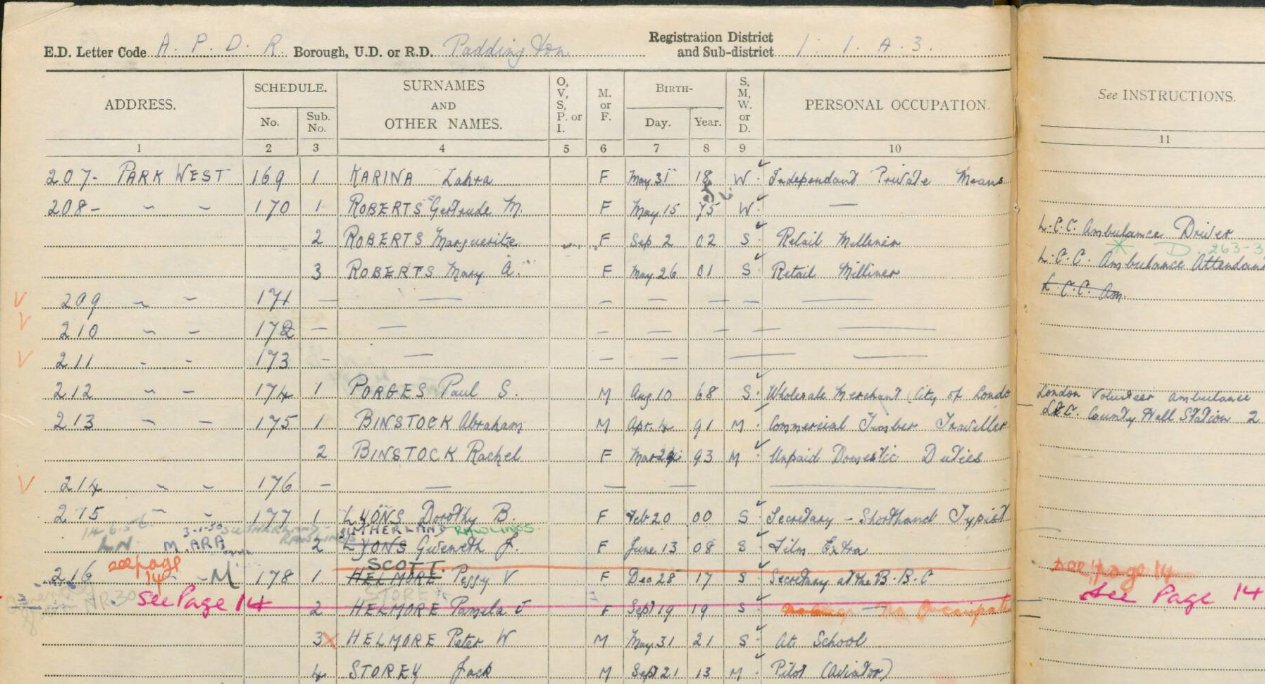 E.D. Letter Code A. P. D. R. Borough, U.D. or R.D. Paddington Registration District and Sub-district 1 1 A. 3.
ADDRESS. SCHEDULE. No. Sub. No. SURNAMES AND OTHER NAMES. O, V, S, P. or I. M. or F. BIRTH- Day. Year. S, M, W. or D. PERSONAL OCCUPATION. See INSTRUCTIONS.
1 2 3 4 5 6 7 8 9 10 11
207- PARK WEST 169 1 KARINA Zahra F May 31 18 W. Independant Private Means
208- " " 170 1 ROBERTS Gertrude M. F May 15 75 W. —
2 ROBERTS Marguerite F Sep. 2 02 S Retail Milliner L.C.C. Ambulance Driver
3 ROBERTS Mary A. F May 26 01 S Retail Milliner L.C.C. Ambulance Attendant
209 " " 171 — — — — — — — L.C.C. Am.
210 " " 172 — — — — — — —
211 " " 173 — — — — — — —
212 " " 174 1 PORGES Paul S. M Aug 10 68 S. Wholesale Merchant City of London London Volunteer Ambulance
213 " " 175 1 BINSTOCK Abraham M Apr. 4 91 M. Commercial Timber Traveller L.C.C. County Hall Station 2
2 BINSTOCK Rachel F Mar 24 93 M Unpaid Domestic Duties
214 " " 176 — — — — — —
215 " " 177 1 LYONS Dorothy B. F Feb 20 00 S Secretary - Shorthand Typist
SUTHERLAND RAWLINGS
2 LYONS Gweneth J. F June 13 08 S Film Extra
SCOTT
216 " M 178 1 HELMORE Peggy V F Dec 28 17 S Secretary at the B.B.C
see page 14
see page 14
See Page 14 2 HELMORE Pamela J F Sept 19 19 S No Occupati See Page 14
3 HELMORE Peter W M May 31 21 S At School
4 STOREY Jack M Sept 21 13 M Pilot (Aviator)